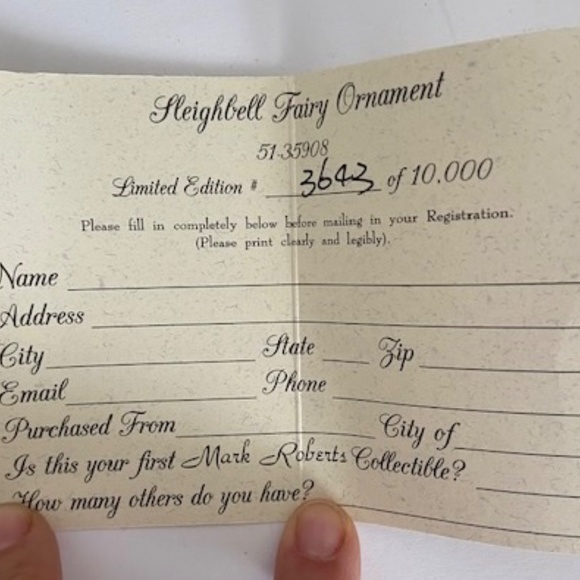 Sleighbell Fairy Ornament
51-35908
Limited Edition # 3643 of 10,000
Please fill in completely below before mailing in your Registration.
(Please print clearly and legibly).
Name
Address
City State Zip
Email Phone
Purchased From City of
Is this your first Mark Roberts Collectible?
How many others do you have?